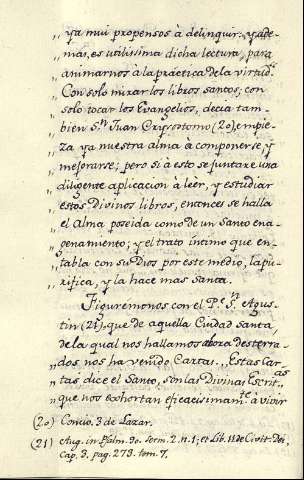 „ ya mui propensos à delinquir: y ade-
„ mas, es utilissima dicha lectura, para
„ animarnos à la practica dela virtud.
„ Con solo mirar los libros santos, con
„ solo tocar los Evangelios, decia tam-
„ bien S.n Juan Crisostomo (20), empie-
„ za ya nuestra alma à componerse, y
„ mejorarse; pero si à esto se juntare una
„ diligente aplicacion à leer, y estudiar
„ estos Divinos libros, entonces se halla
„ el Alma poseida como de un Santo ena-
„ genamiento; y el trato intimo que en-
„ tabla con su Dios por este medio, la pu-
„ rifica, y la hace mas santa.
Figuremonos con el P.e S.n Agus-
tin (21), que de aquella Ciudad Santa,
de la qual nos hallamos ahora desterra-
dos nos ha venido Cartas. „ Estas Car-
„ tas dice el Santo, son las Divinas Escrit.as
„ que nos exhortan eficacisimam.te à vivir
(20) Concio. 3 de Lazar.
(21) Aug. in Psalm. 90. serm. 2. n. 1; et Lib. 11 de Civit. Dei,
Cap. 3. pag. 273. tom. 7.